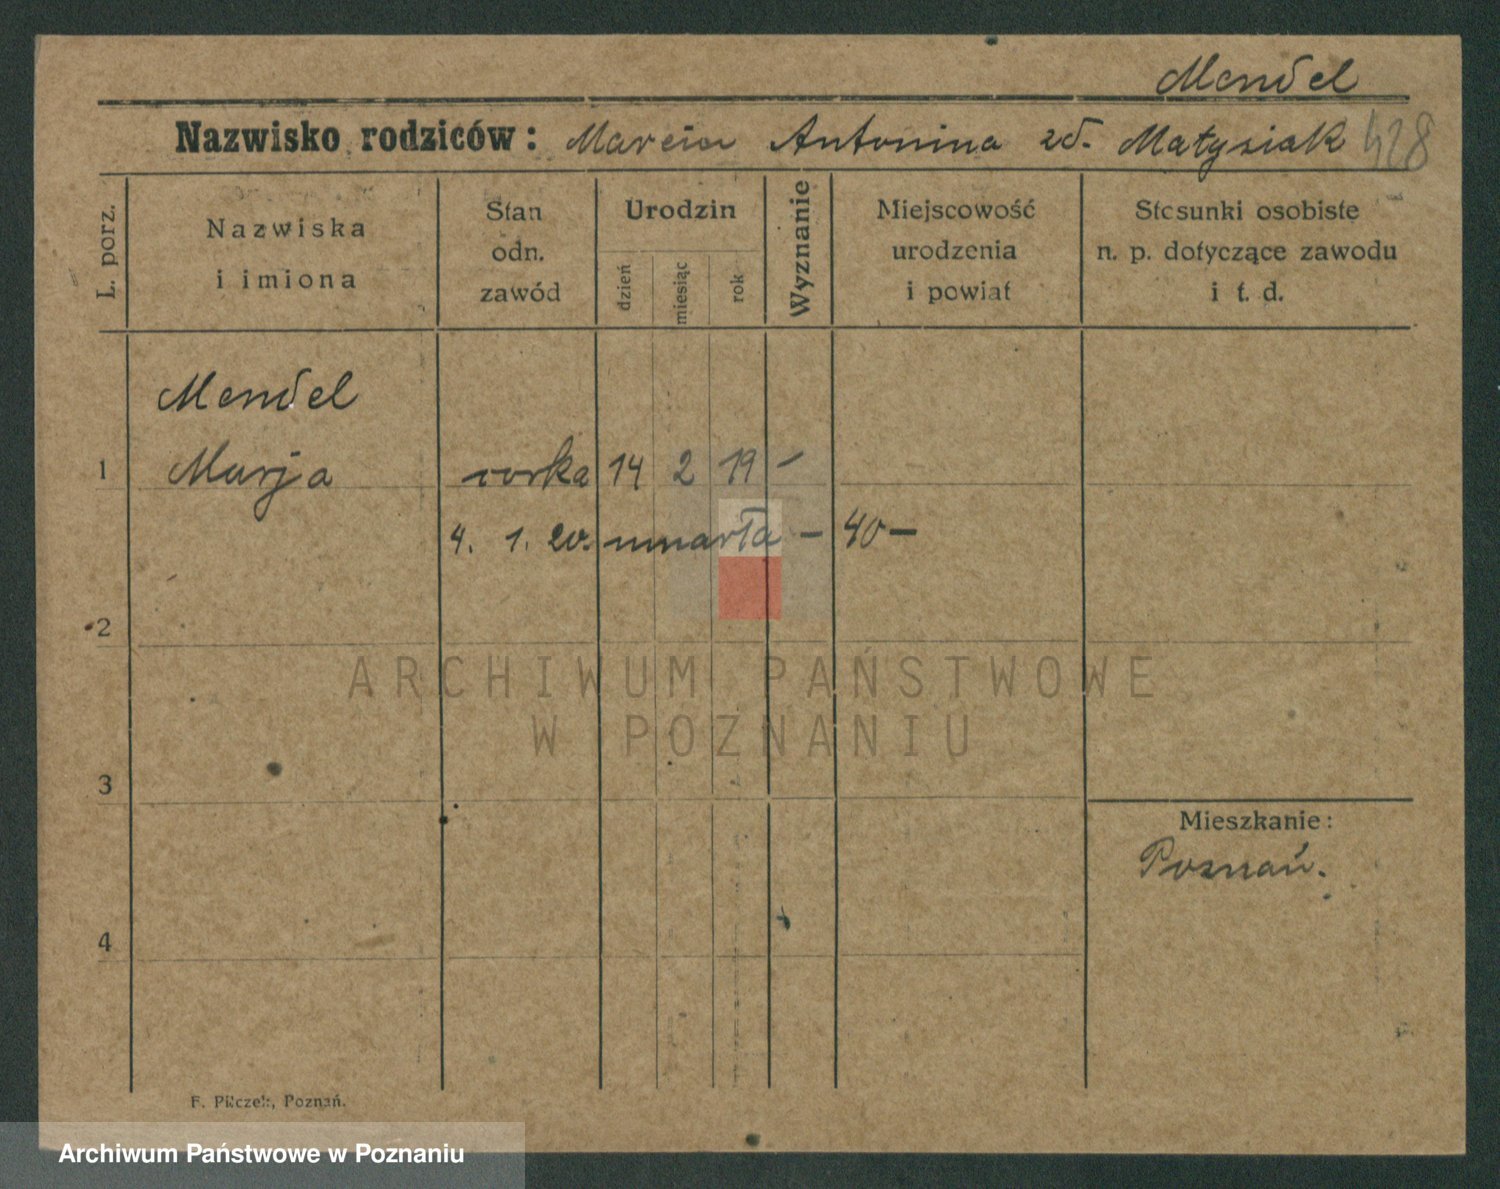 Mendel
Nazwisko rodziców: Marcin Antonina zd. Matysiak 428
L. porz.
Nazwiska
i imiona
Stan
odn.
zawód
Urodzin
dzień
miesiąc
rok
Wyznanie
Miejscowość
urodzenia
i powiat
Stosunki osobiste
n. p. dotyczące zawodu
i t. d.
Mendel
1 Marja corka 14 2 19 –
4. 1. 20. umarła – 40 –
2
ARCHIWUM PAŃSTWOWE
W POZNANIU
3
Mieszkanie:
Poznań.
4
F. Pilczek, Poznań.
Archiwum Państwowe w Poznaniu